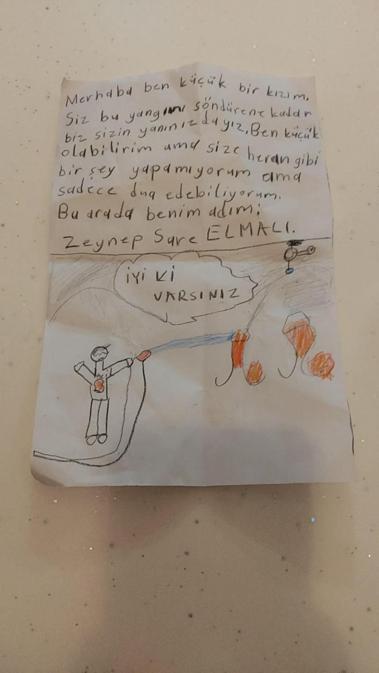 Merhaba ben küçük bir kızım.
Siz bu yangını söndürene kadar
biz sizin yanınızdayız. Ben küçük
olabilirim ama size herangibi
bir şey yapamıyorum ama
sadece dua edebiliyorum.
Bu arada benim adım:
Zeynep Sare ELMALI.
İYİ Kİ
VARSINIZ